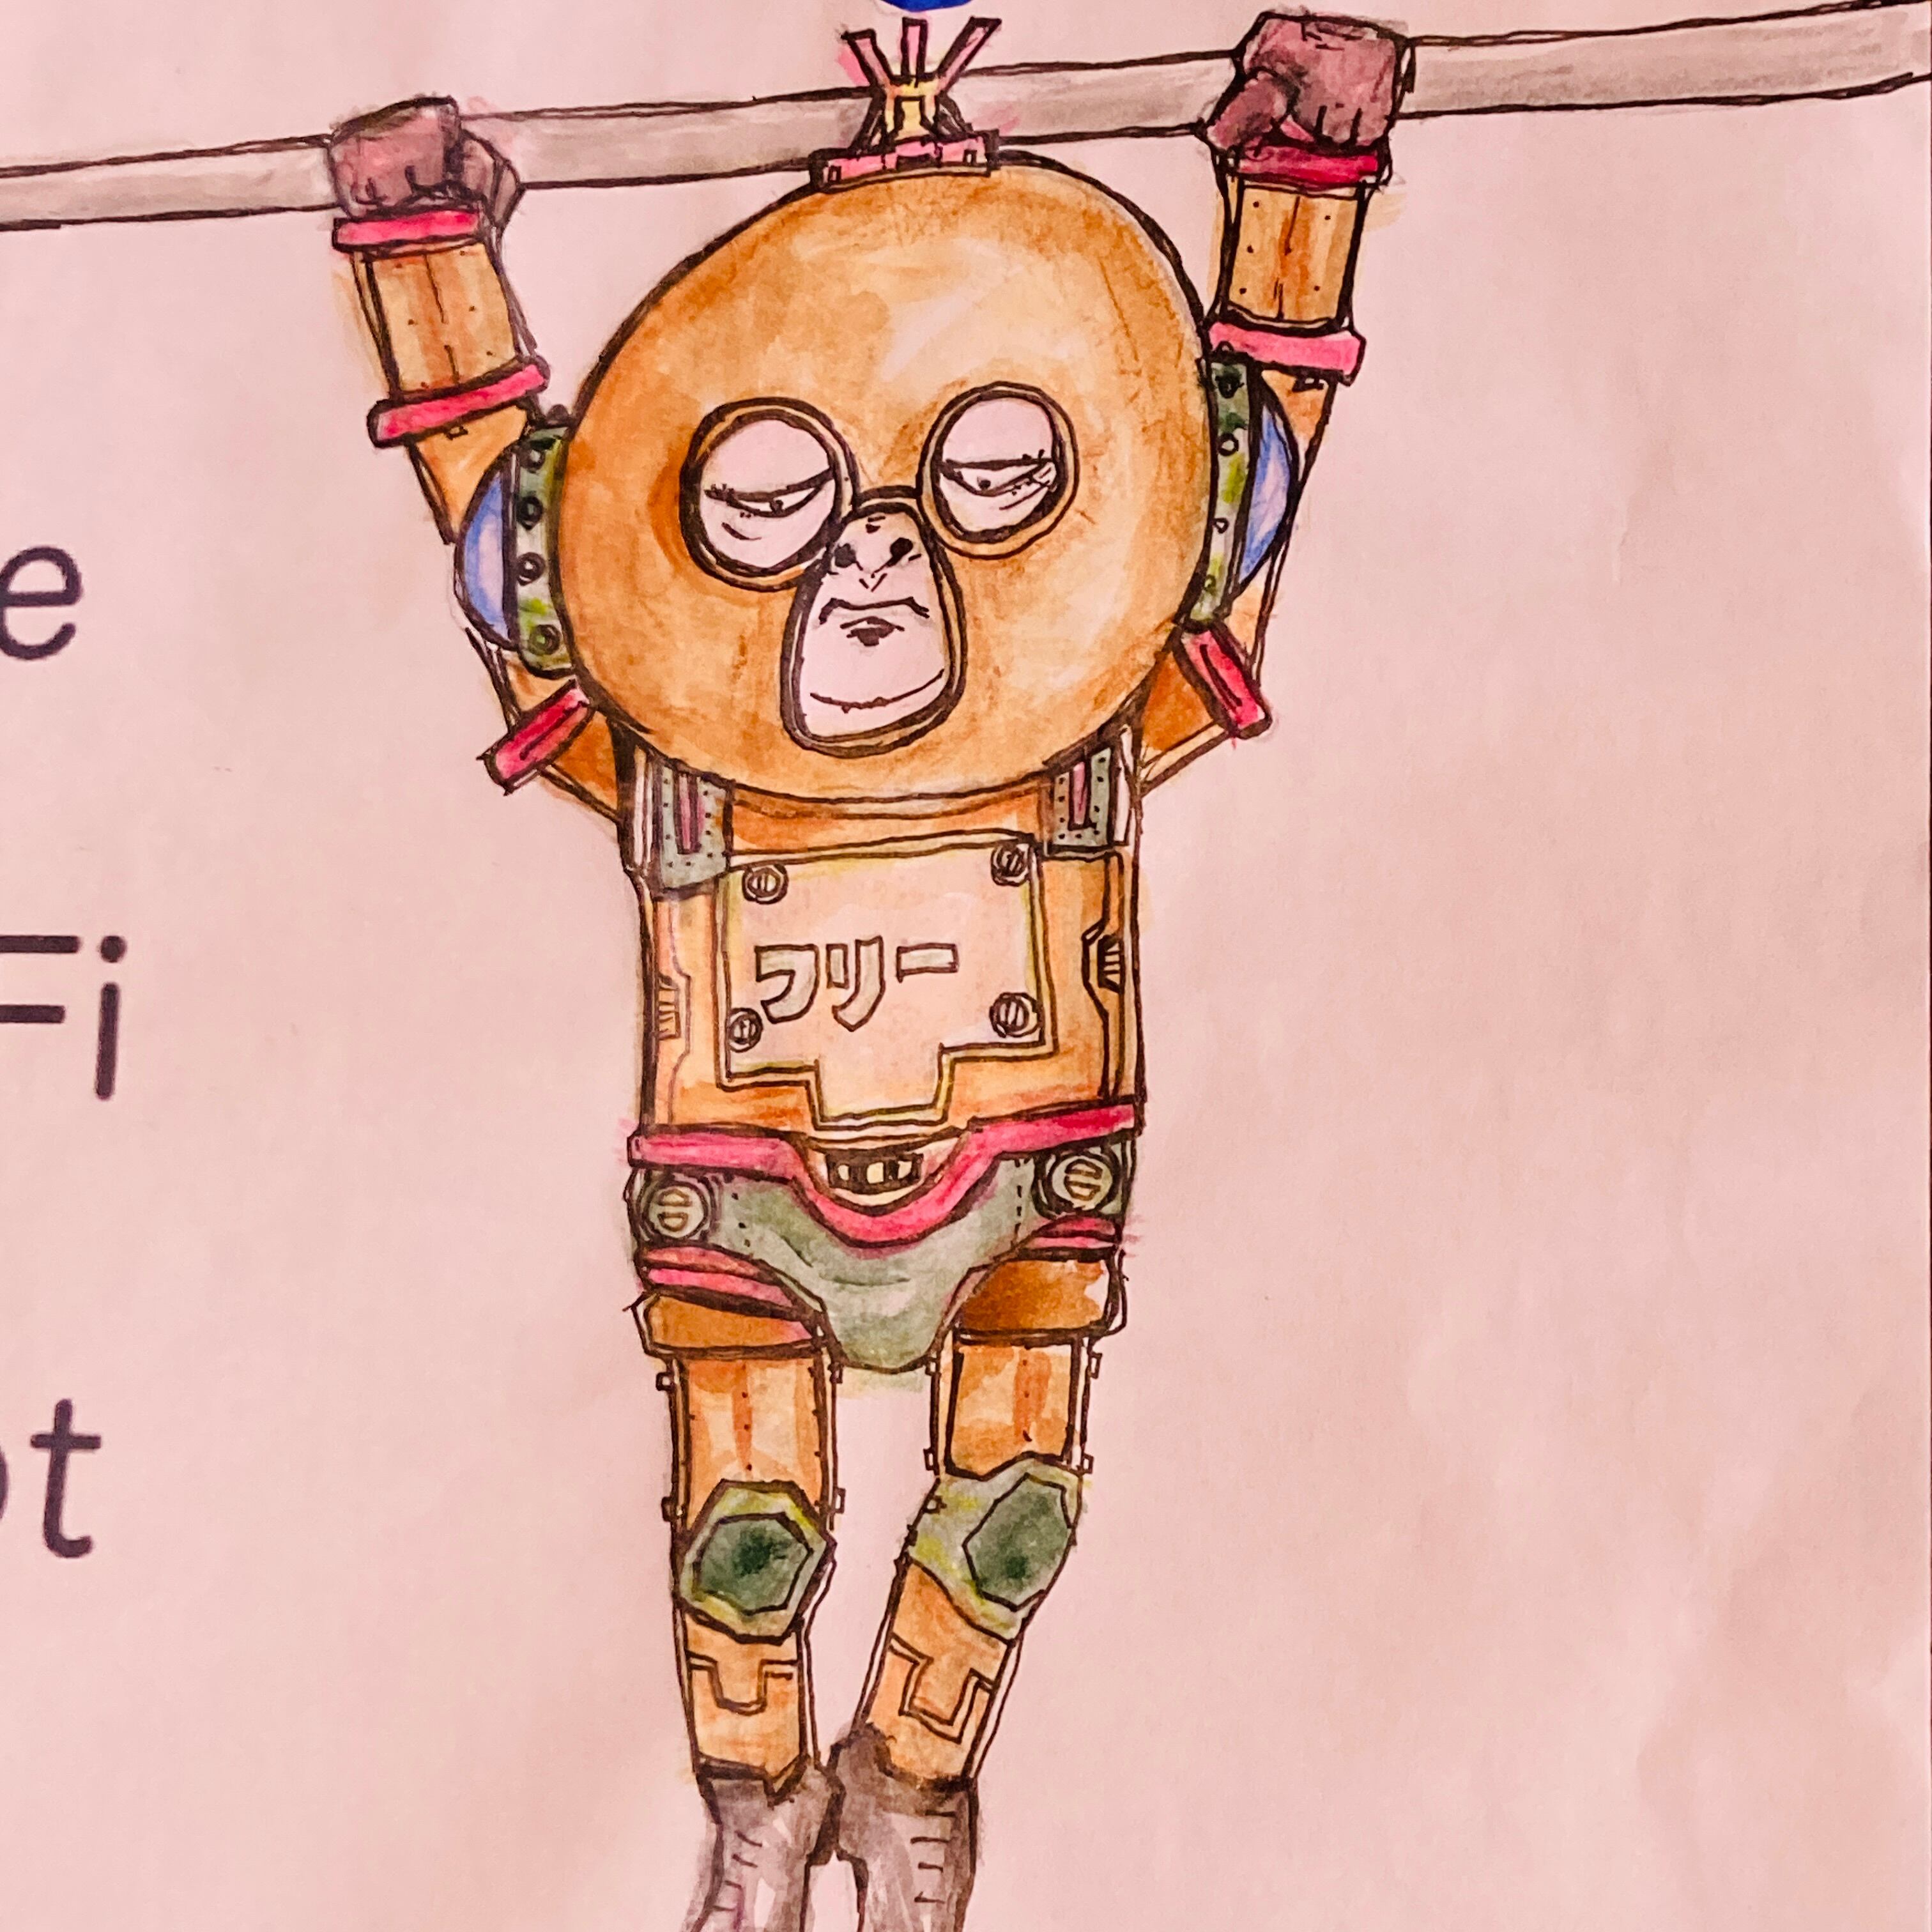 e
Fi
ot
フリー